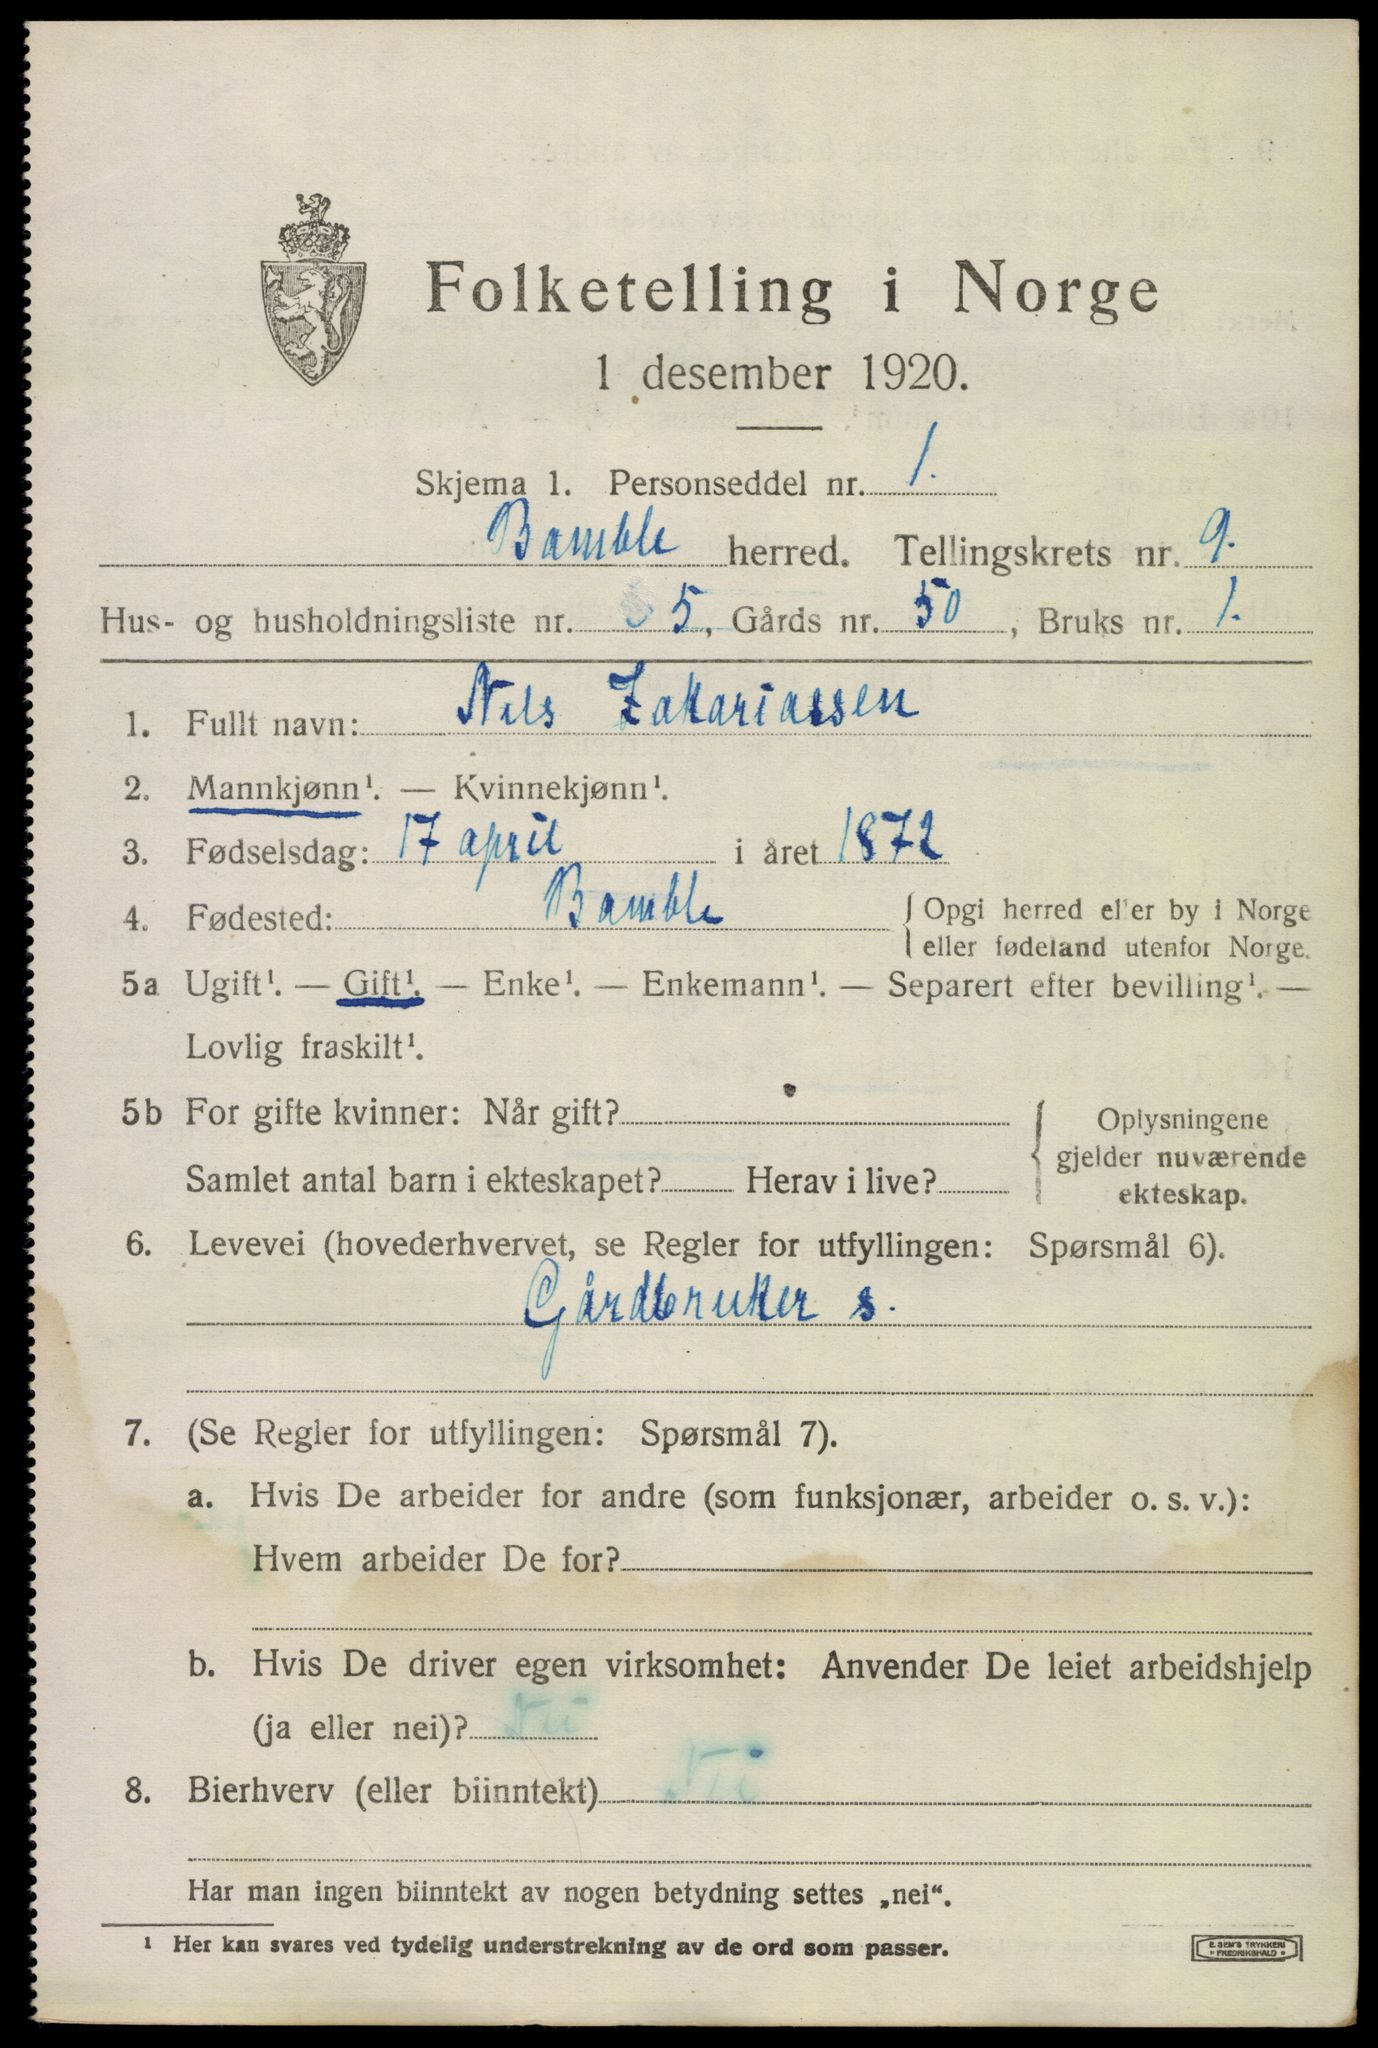 Folketelling i Norge
1 desember 1920.
Skjema 1. Personseddel nr. 1.
Bamble herred. Tellingskrets nr. 9.
Hus- og husholdningsliste nr. 5, Gårds nr. 50, Bruks nr. 1.
1. Fullt navn: Nils Zakariassen
2. Mannkjønn¹. — Kvinnekjønn¹.
3. Fødselsdag: 17 april i året 1872
4. Fødested: Bamble { Opgi herred eller by i Norge
eller fødeland utenfor Norge.
5a Ugift¹. — Gift¹. — Enke¹. — Enkemann¹. — Separert efter bevilling¹. —
Lovlig fraskilt¹.
5b For gifte kvinner: Når gift? { Oplysningene
gjelder nuværende
Samlet antal barn i ekteskapet? Herav i live? ekteskap.
6. Levevei (hovederhvervet, se Regler for utfyllingen: Spørsmål 6).
Gårdbruker s.
7. (Se Regler for utfyllingen: Spørsmål 7).
a. Hvis De arbeider for andre (som funksjonær, arbeider o. s. v.):
Hvem arbeider De for?
b. Hvis De driver egen virksomhet: Anvender De leiet arbeidshjelp
(ja eller nei)? Nei
8. Bierhverv (eller biinntekt) Nei
Har man ingen biinntekt av nogen betydning settes „nei“.
¹ Her kan svares ved tydelig understrekning av de ord som passer.
E. SEM'S TRYKKERI
FREDRIKSHALD